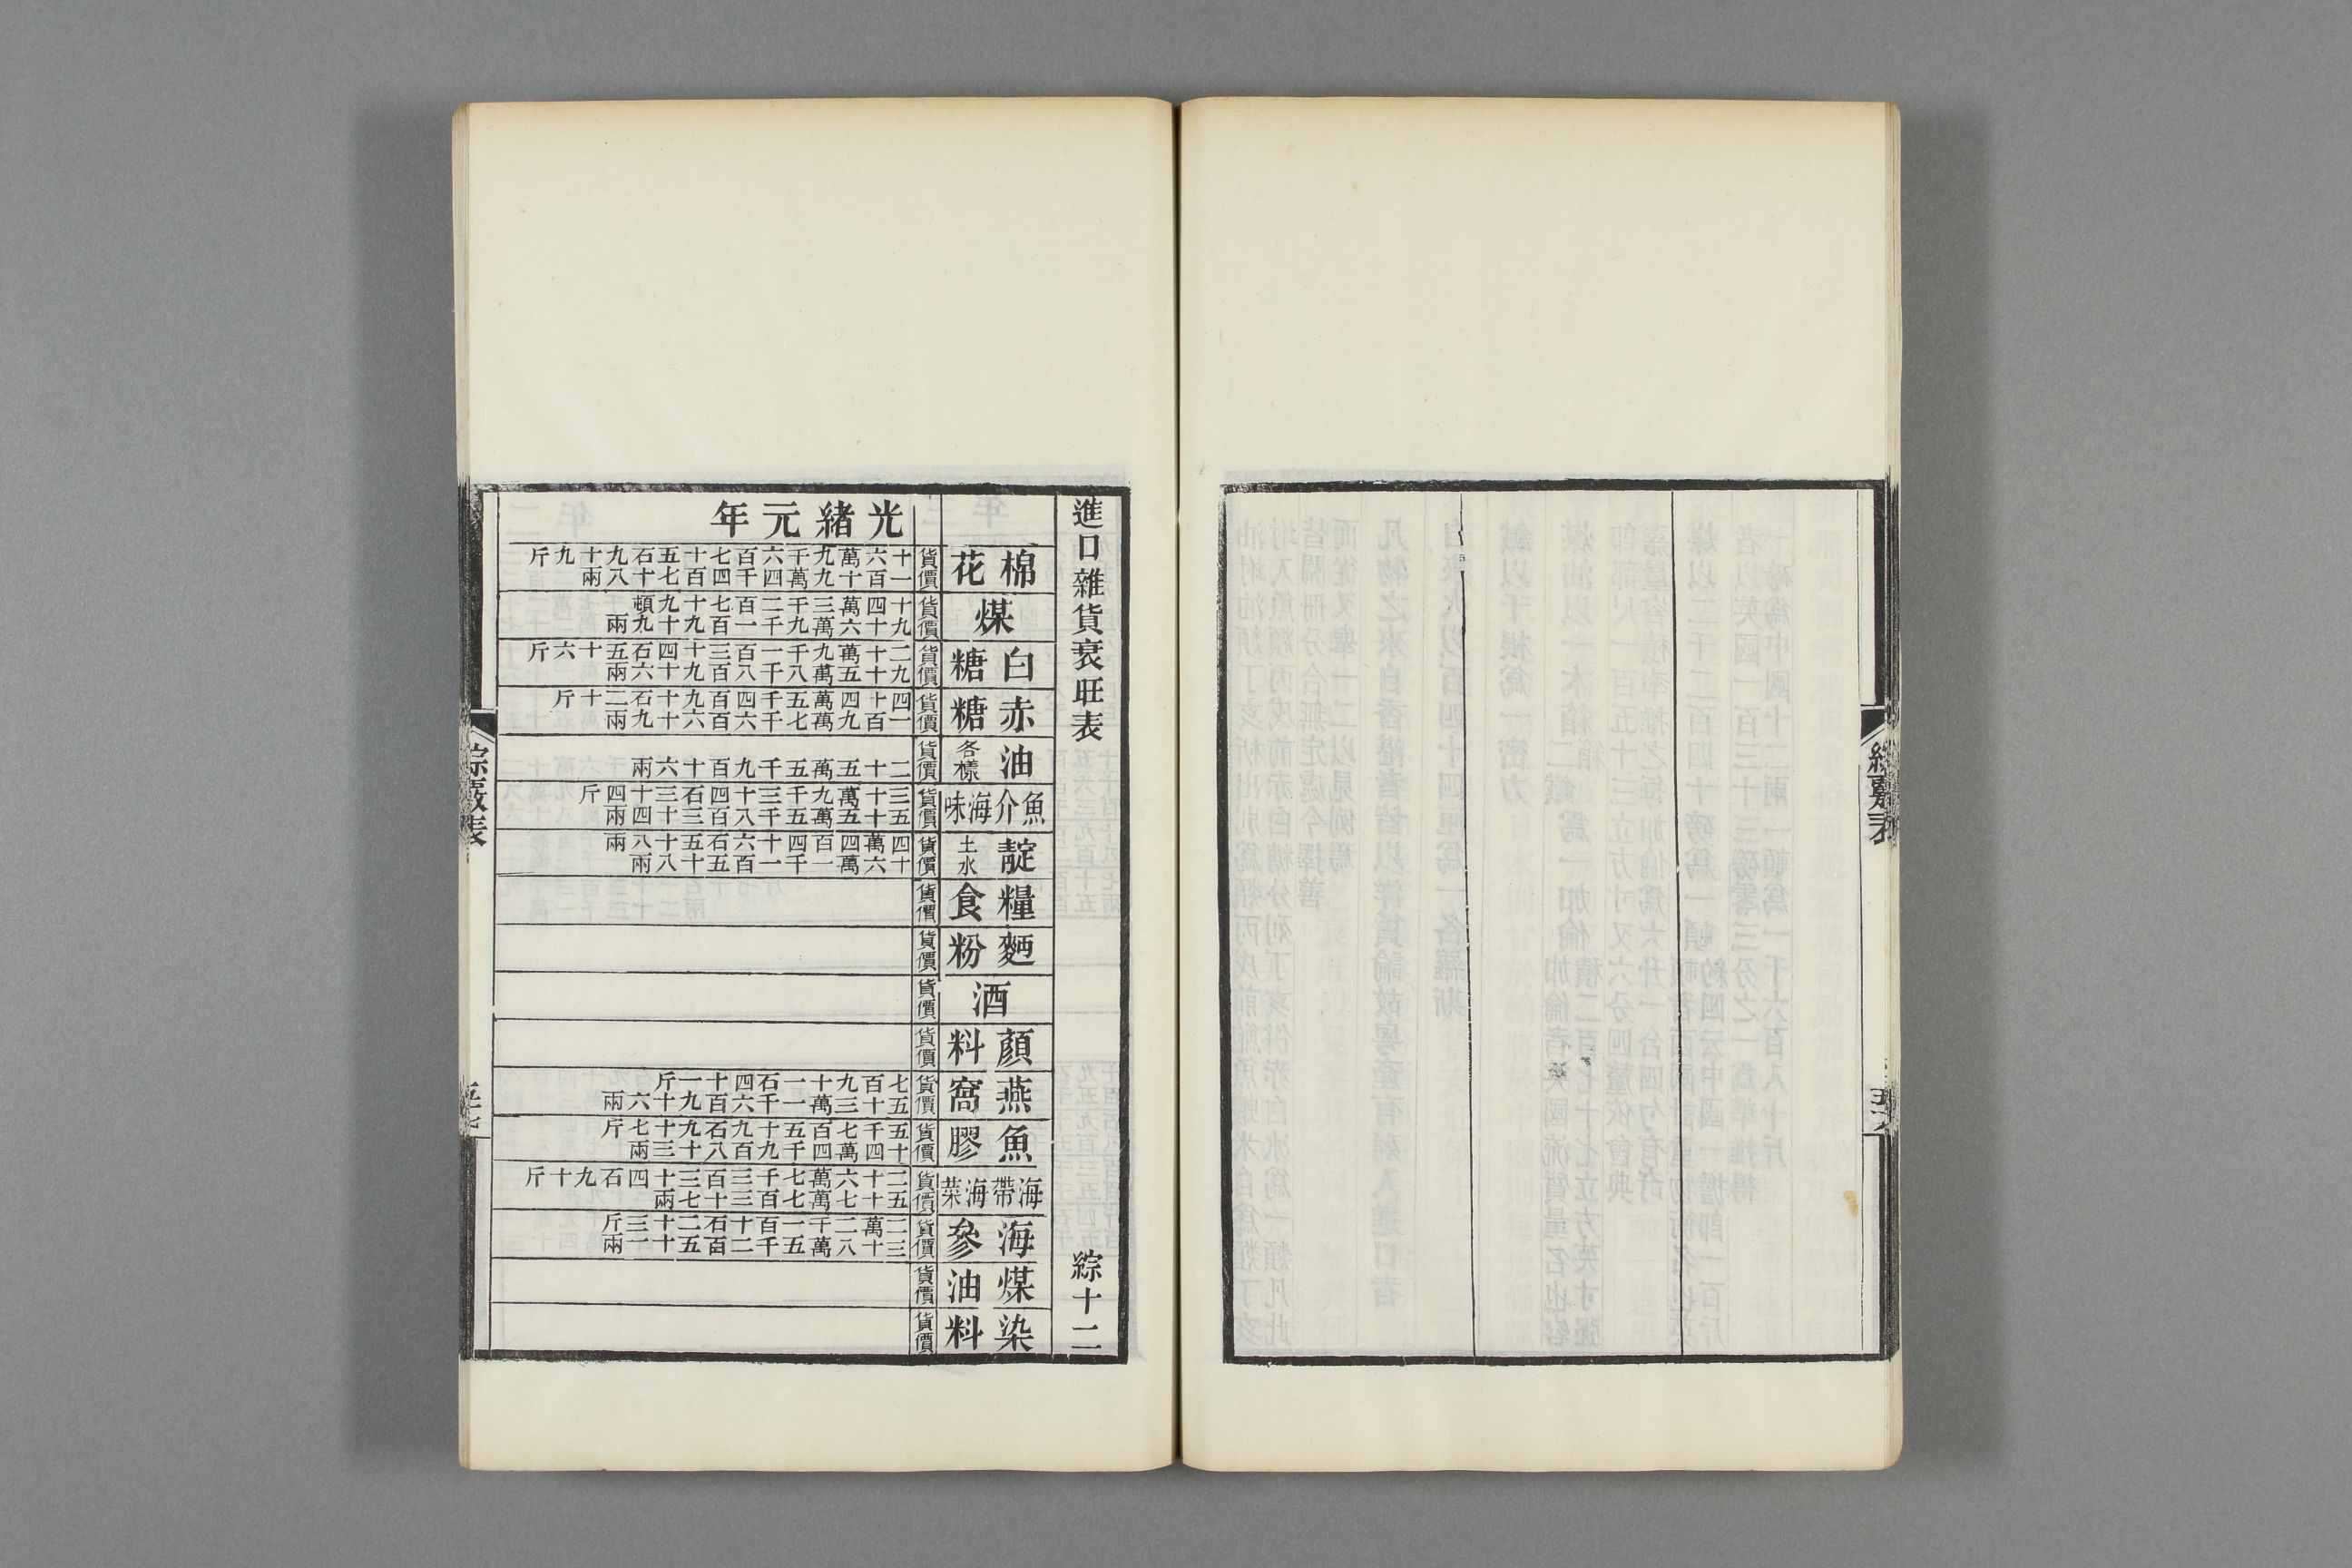 進口雜貨衰旺表　綜十二
光緒元年
棉花
貨　十六萬九千六百七十五石九十九斤
價　一百十九萬四千四百七十八兩
煤
貨　十四萬三千二百七十九頓
價　九十六萬九千一百九十九兩
白糖
貨　二十萬九千一百三十四石五十六斤
價　九十五萬八千八百九十六兩
赤糖
貨　四十四萬五千四百九十石二十斤
價　一百九萬七千六百六十九兩
油各樣
貨
價　二十五萬五千九百十六兩
魚介海味
貨　三十萬九千三十四石三十四斤
價　五十五萬五千八百三十四兩
靛土水
貨　四萬四百四十六石五十八兩
價　十六萬一千一百五十八兩
糧食
貨
價
麪粉
貨
價
酒
貨
價
顏料
貨
價
燕窩
貨　七百九十一石四十一斤
價　五十三萬一千六百九十六兩
魚膠
貨　五千七百五十九石九十七斤
價　十四萬四千九百八十三兩
海帶海菜
貨　二十六萬七千三百三十四石九十斤
價　五十七萬七百三十七兩
海參
貨　二萬二千一百十石二十三斤
價　三十八萬五千二百五十一兩
煤油
貨
價
染料
貨
價
綜覈表